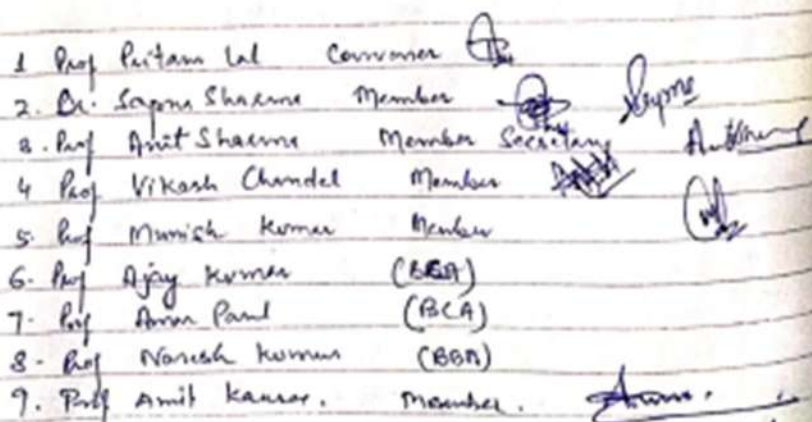 1 Prof Pritam Lal Convener
2. Dr. Sapna Sharma Member
3. Prof Amit Sharma Member Secretary
4 Prof Vikash Chandel Member
5. Prof Munish Kumar Member
6. Prof Ajay Kumar (BBA)
7. Prof Amar Paul (BCA)
8 - Prof Naresh Kumar (BBA)
9. Prof Amit Kanwar. Member.